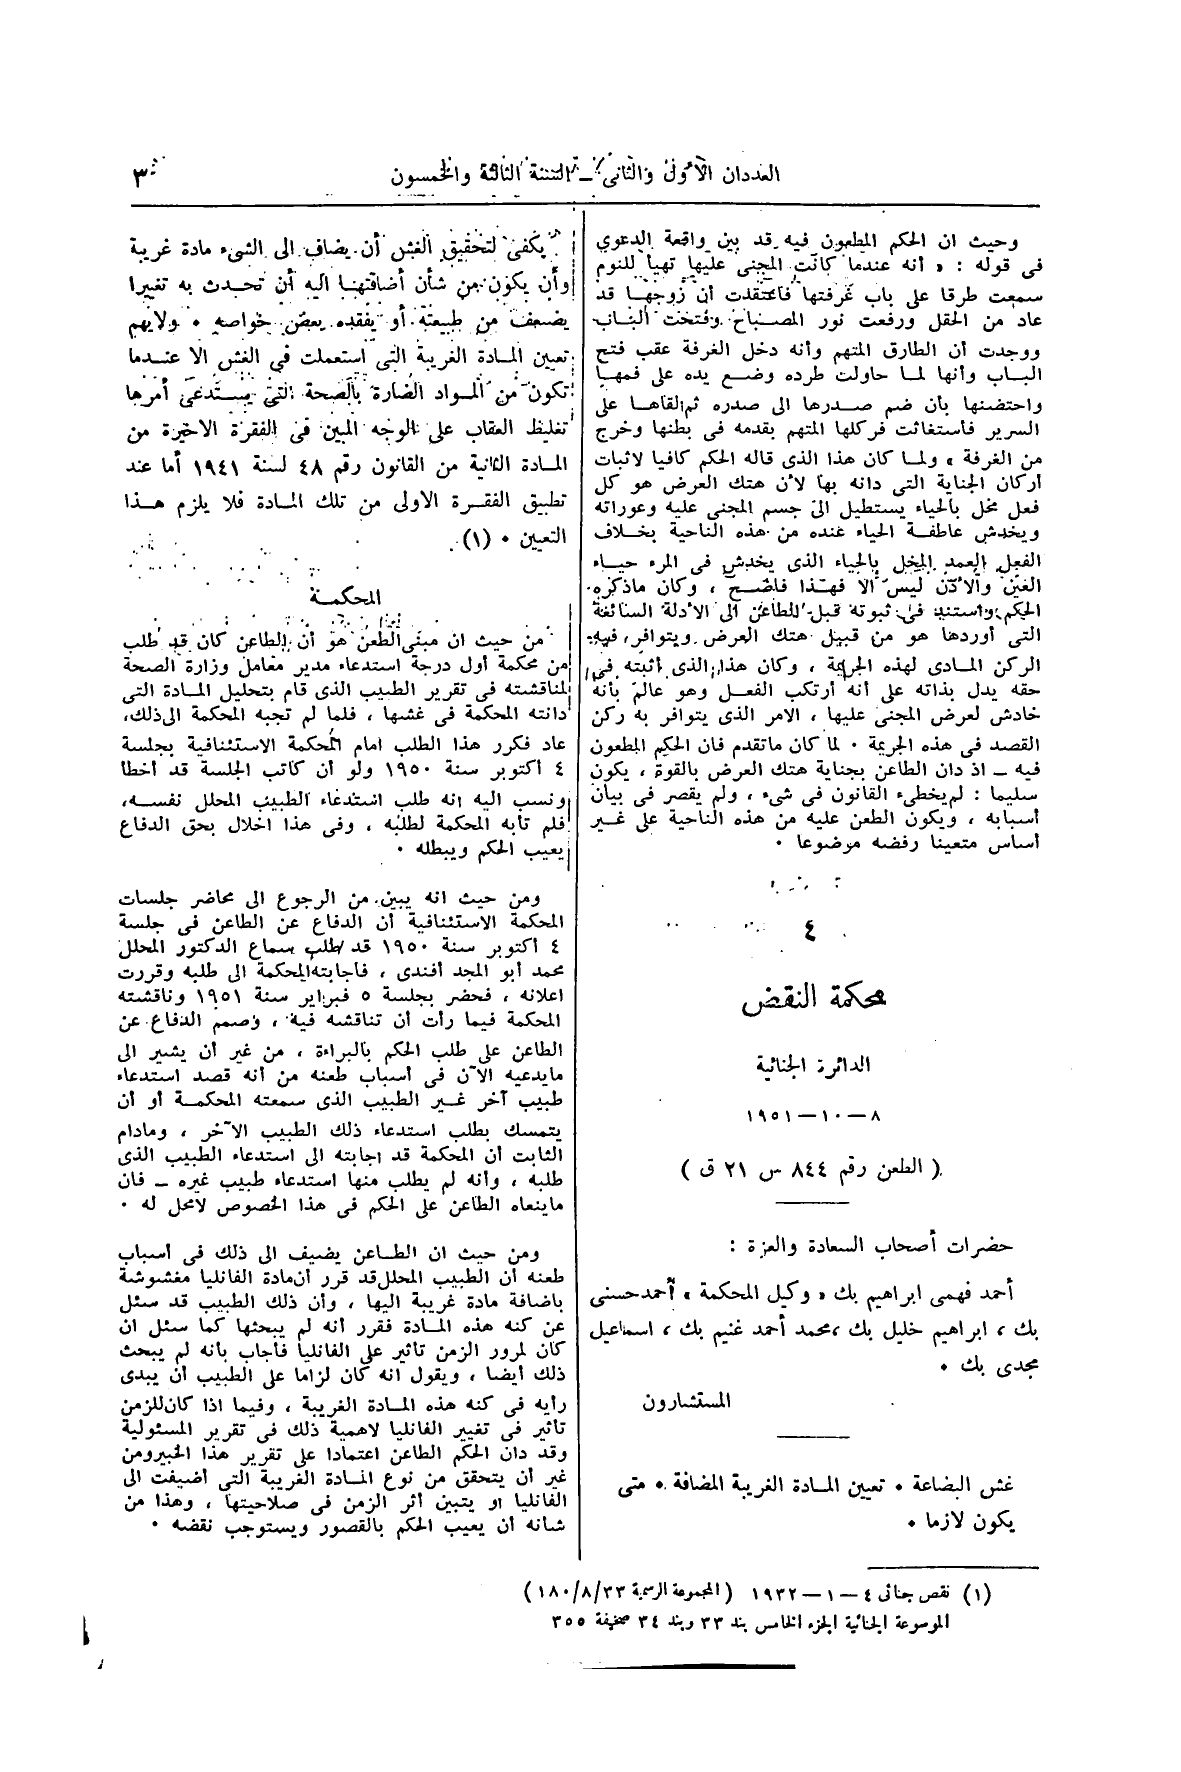 العددان الأول والثانى – السنة الثالثة والخمسون
٣
وحيث ان الحكم المطعون فيه قد بين واقعة الدعوي
فى قوله : « أنه عندما كانت المجنى عليها تهيأ للنوم
سمعت طرقا على باب غرفتها فاعتقدت أن زوجها قد
عاد من الحقل ورفعت نور المصباح وفتحت الباب
ووجدت أن الطارق المتهم وأنه دخل الغرفة عقب فتح
الباب وأنها لما حاولت طرده وضع يده على فمها
واحتضنها بأن ضم صدرها الى صدره ثم القاها على
السرير فاستغاثت فركلها المتهم بقدمه فى بطنها وخرج
من الغرفة » ولما كان هذا الذى قاله الحكم كافيا لاثبات
أركان الجناية التى دانه بها لأن هتك العرض هو كل
فعل مخل بالحياء يستطيل الى جسم المجنى عليه وعوراته
ويخدش عاطفة الحياء عنده من هذه الناحية بخلاف
الفعل العمد المخل بالحياء الذى يخدش فى المرء حياء
العين والأذن ليس الا فهذا فاضح ، وكان ماذكره
الحكم واستند فى ثبوته قبل الطاعن الى الأدلة السائغة
التى أوردها هو من قبيل هتك العرض ويتوافر فيه
الركن المادى لهذه الجريمة ، وكان هذا الذى أثبته فى
حقه يدل بذاته على أنه أرتكب الفعل وهو عالم بأنه
خادش لعرض المجنى عليها ، الامر الذى يتوافر به ركن
القصد فى هذه الجريمة ٠ لما كان ماتقدم فان الحكم المطعون
فيه – اذ دان الطاعن بجناية هتك العرض بالقوة ، يكون
سليما : لم يخطىء القانون فى شىء ، ولم يقصر فى بيان
أسبابه ، ويكون الطعن عليه من هذه الناحية على غير
أساس متعينا رفضه موضوعا ٠
٤
محكمة النقض
الدائرة الجنائية
٨ – ١٠ – ١٩٥١
( الطعن رقم ٨٤٤ س ٢١ ق )
حضرات أصحاب السعادة والعزة :
أحمد فهمى ابراهيم بك « وكيل المحكمة » أحمد حسنى
بك ، ابراهيم خليل بك ، محمد أحمد غنيم بك ، اسماعيل
مجدى بك ٠
المستشارون
غش البضاعة ٠ تعيين المادة الغريبة المضافة ٠ متى
يكون لازما ٠
يكفى لتحقيق الغش أن يضاف الى الشىء مادة غريبة
وأن يكون من شأن أضافتها اليه أن تحدث به تغيرا
يضعف من طبيعته أو يفقده بعض خواصه ٠ ولايهم
تعيين المادة الغريبة التى استعملت فى الغش الا عندما
تكون من المواد الضارة بالصحة التى يستدعى أمرها
تغليظ العقاب على الوجه المبين فى الفقرة الاخيرة من
المادة الثانية من القانون رقم ٤٨ لسنة ١٩٤١ أما عند
تطبيق الفقرة الاولى من تلك المادة فلا يلزم هذا
التعيين ٠ (١)
المحكمة
من حيث ان مبنى الطعن هو أن الطاعن كان قد طلب
من محكمة أول درجة استدعاء مدير معامل وزارة الصحة
لمناقشته فى تقرير الطبيب الذى قام بتحليل المادة التى
دانته المحكمة فى غشها ، فلما لم تجبه المحكمة الى ذلك،
عاد فكرر هذا الطلب امام المحكمة الاستئنافية بجلسة
٤ اكتوبر سنة ١٩٥٠ ولو أن كاتب الجلسة قد أخطأ
ونسب اليه انه طلب استدعاء الطبيب المحلل نفسه،
فلم تأبه المحكمة لطلبه ، وفى هذا اخلال بحق الدفاع
يعيب الحكم ويبطله ٠
ومن حيث انه يبين من الرجوع الى محاضر جلسات
المحكمة الاستئنافية أن الدفاع عن الطاعن فى جلسة
٤ اكتوبر سنة ١٩٥٠ قد طلب سماع الدكتور المحلل
محمد أبو المجد أفندى ، فاجابته المحكمة الى طلبه وقررت
اعلانه ، فحضر بجلسة ٥ فبراير سنة ١٩٥١ وناقشته
المحكمة فيما رأت أن تناقشه فيه ، وصمم الدفاع عن
الطاعن على طلب الحكم بالبراءة ، من غير أن يشير الى
مايدعيه الآن فى أسباب طعنه من أنه قصد استدعاء
طبيب آخر غير الطبيب الذى سمعته المحكمة أو أن
يتمسك بطلب استدعاء ذلك الطبيب الآخر ، ومادام
الثابت أن المحكمة قد اجابته الى استدعاء الطبيب الذى
طلبه ، وأنه لم يطلب منها استدعاء طبيب غيره – فان
ماينعاه الطاعن على الحكم فى هذا الخصوص لامحل له ٠
ومن حيث ان الطاعن يضيف الى ذلك فى أسباب
طعنه أن الطبيب المحلل قد قرر أن مادة الفانليا مغشوشة
باضافة مادة غريبة اليها ، وأن ذلك الطبيب قد سئل
عن كنه هذه المادة فقرر أنه لم يبحثها كما سئل ان
كان لمرور الزمن تأثير على الفانليا فأجاب بأنه لم يبحث
ذلك أيضا ، ويقول انه كان لزاما على الطبيب أن يبدى
رأيه فى كنه هذه المادة الغريبة ، وفيما اذا كان للزمن
تأثير فى تغيير الفانليا لاهمية ذلك فى تقرير المسئولية
وقد دان الحكم الطاعن اعتمادا على تقرير هذا الخبير ومن
غير أن يتحقق من نوع المادة الغريبة التى أضيفت الى
الفانليا او يتبين أثر الزمن فى صلاحيتها ، وهذا من
شأنه أن يعيب الحكم بالقصور ويستوجب نقضه ٠
(١) نقض جنائى ٤ – ١ – ١٩٣٢ ( المجموعة الرسمية ١٨٠/٨/٣٣ )
الموسوعة الجنائية الجزء الخامس بند ٣٣ وبند ٣٤ صحيفة ٣٥٥